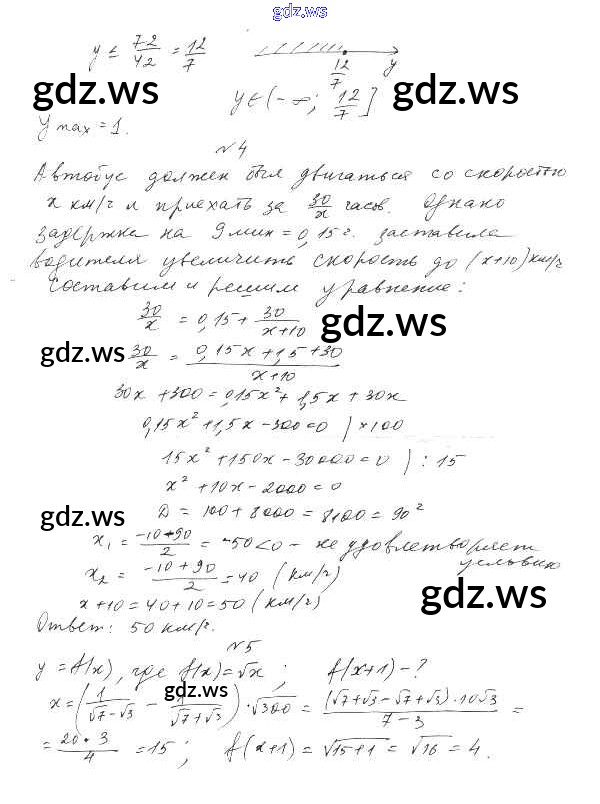 gdz.ws
y ≤ 72/42 = 12/7      12/7  y
y ∈ (-∞; 12/7]
gdz.ws gdz.ws
y max = 1.
№4
Автобус должен был двигаться со скоростью
x км/г и приехать за 30/x часов. Однако
задержка на 9 мин = 0,15 г. заставила
водителя увеличить скорость до (x+10) км/г
Составим и решим уравнение:
30/x = 0,15 + 30/(x+10)
gdz.ws
gdz.ws 30/x = (0,15x + 1,5 + 30)/(x+10)
30x + 300 = 0,15x² + 1,5x + 30x
0,15x² + 1,5x - 300 = 0 | ×100
15x² + 150x - 30000 = 0 | : 15
x² + 10x - 2000 = 0
gdz.ws D = 100 + 8000 = 8100 = 90²
x₁ = (-10+90)/2 = -50 < 0 - не удовлетворяет
условию
x₂ = (-10+90)/2 = 40 (км/г)
gdz.ws
x + 10 = 40 + 10 = 50 (км/г)
Ответ: 50 км/г.
№5
y = f(x), где f(x) = √x ;   f(x+1) - ?
gdz.ws
x = (1/(√7-√3) - 1/(√7+√3)) · √300 = ((√7+√3-√7+√3)·10√3)/(7-3) =
= (20·3)/4 = 15 ;   f(x+1) = √15+1 = √16 = 4.